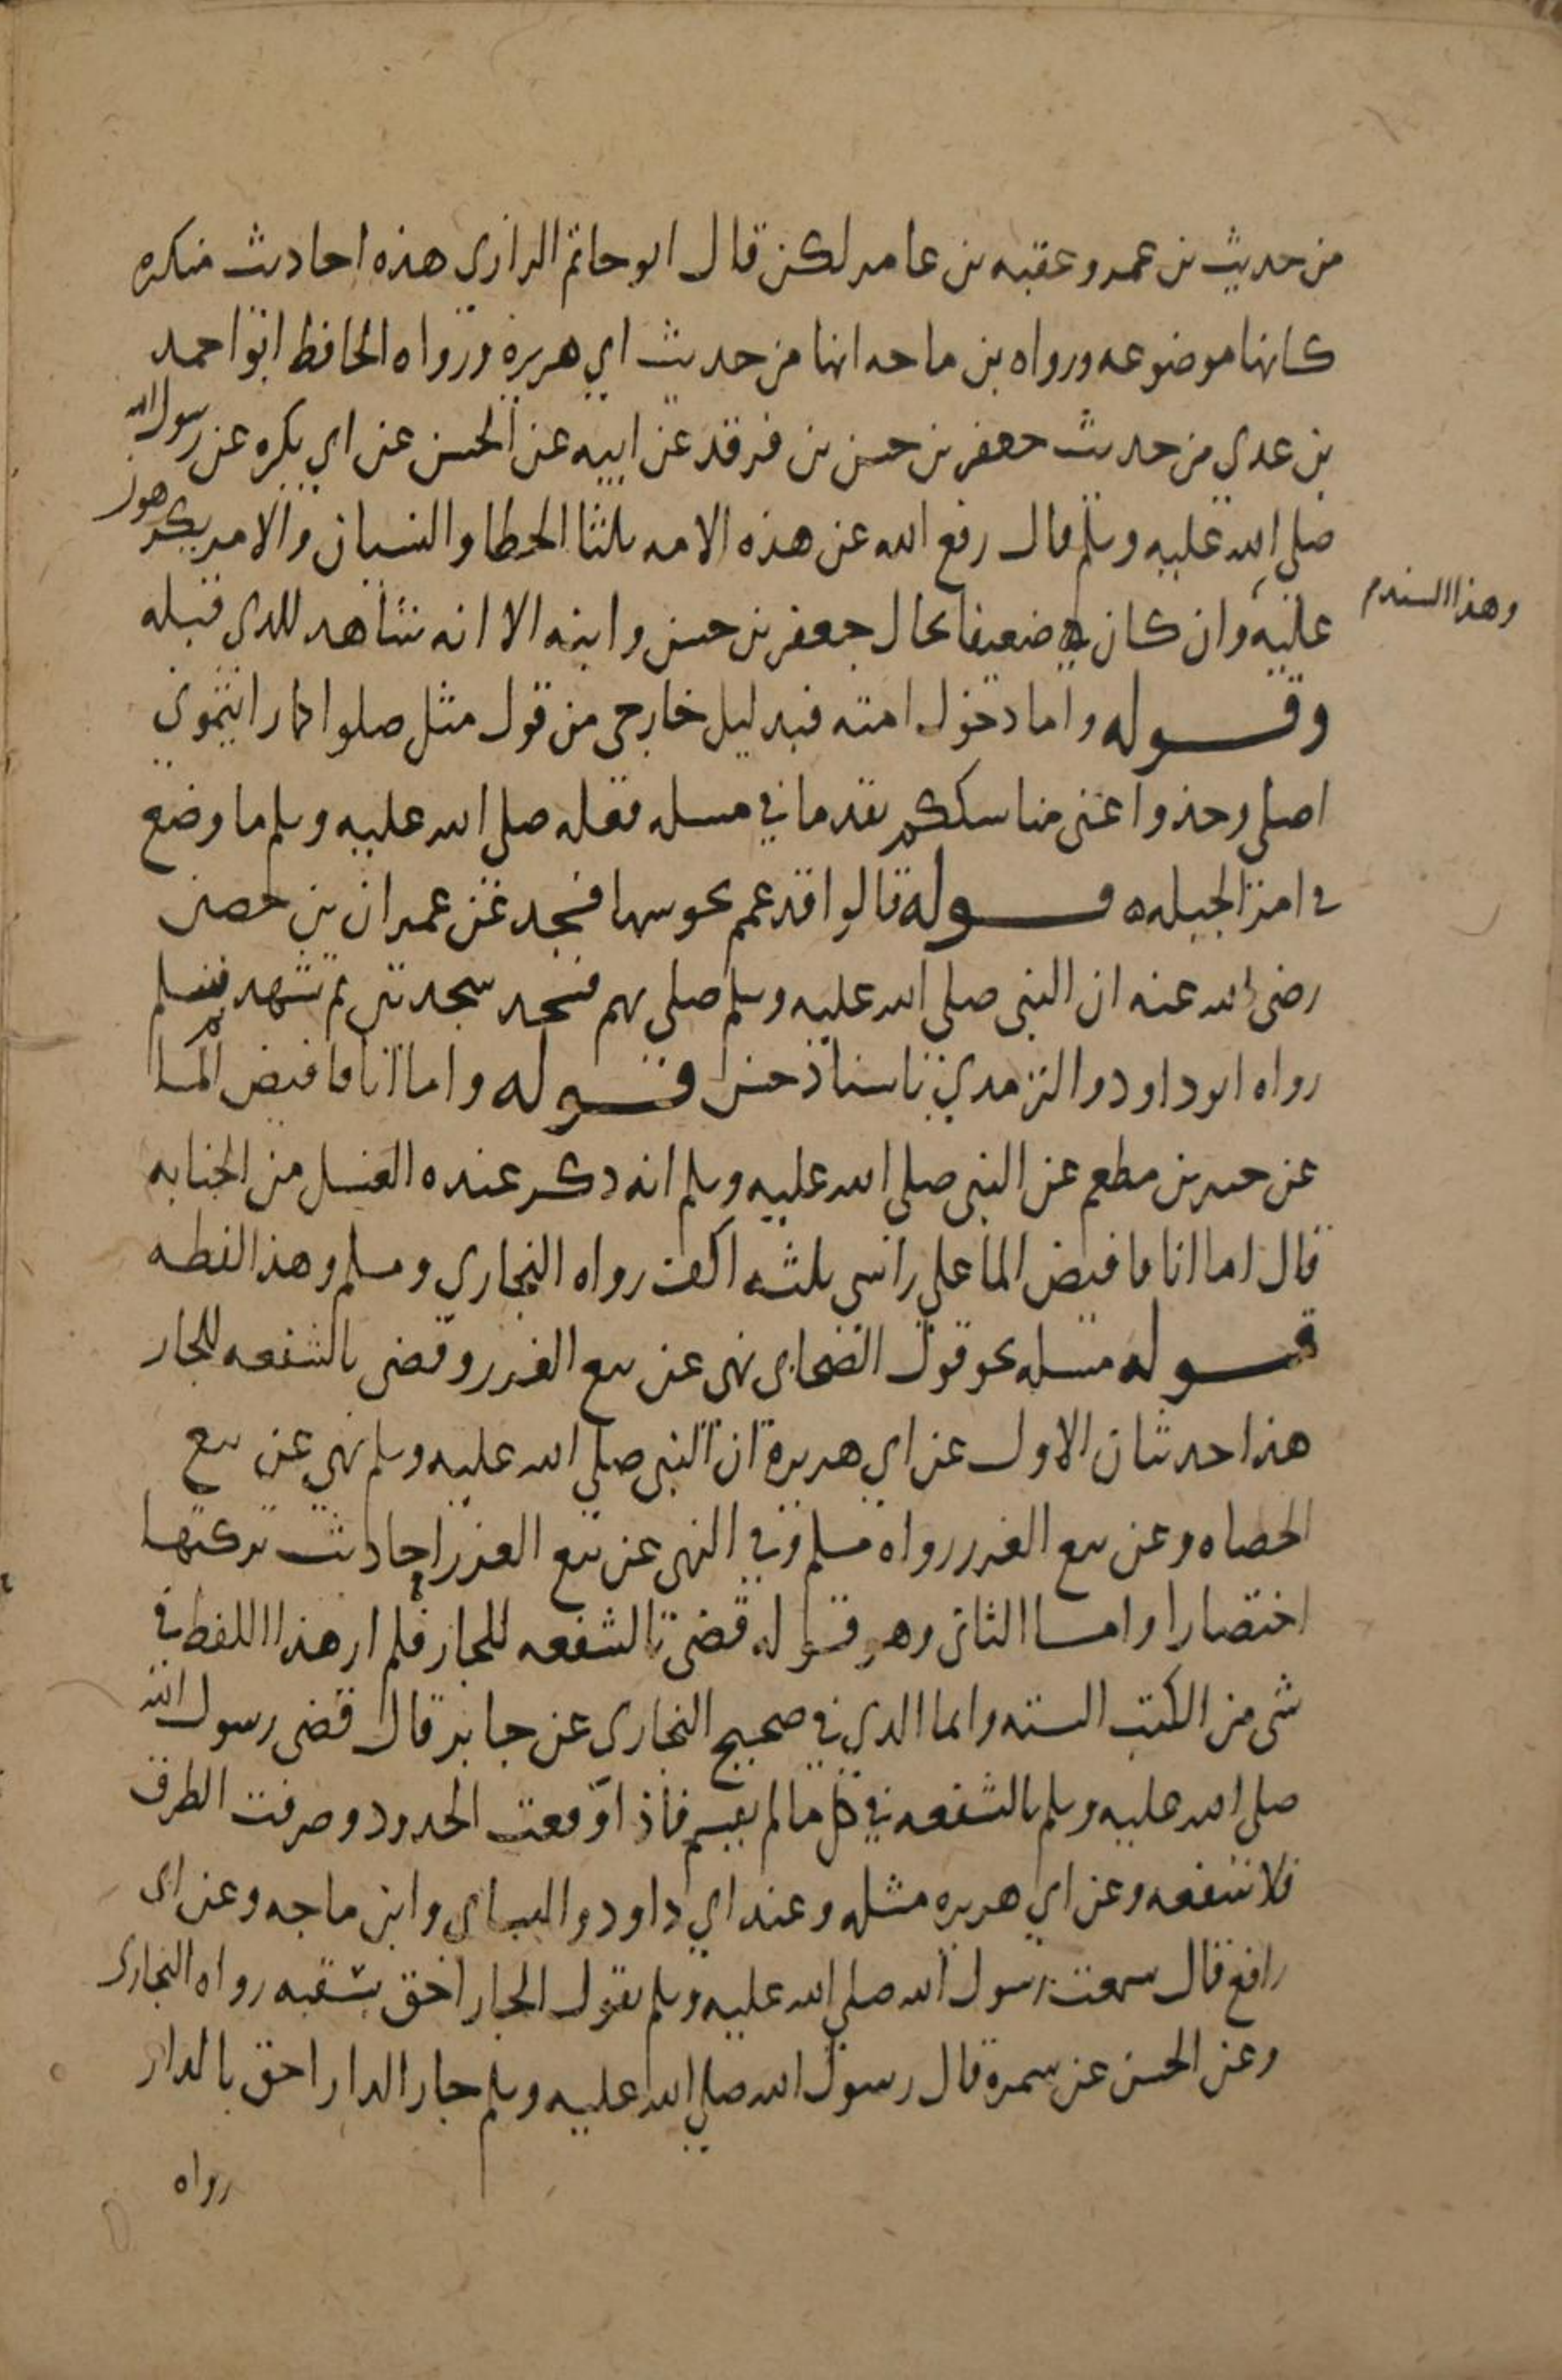 من حديث بن عمر وعقبه بن عامر لكن قال ابو حاتم الرازي هذه احاديث منكره
كانها موضوعه ورواه بن ماجه ايضا من حديث ابي هريرة ورواه الحافظ ابو احمد
بن عدي من حديث جعفر بن حسن بن فرقد عن ابيه عن الحسن عن ابي بكره عن رسول الله
صلي الله عليه وسلم قال رفع الله عن هذه الامه ثلثا الخطا والنسيان والامر يكرهون
عليه وان كان ضعيفا بحال جعفر بن حسن وابيه الا انه شاهد للذي قبله
وهذا السند
وقوله واما دخول امته فبدليل خارجي من قول مثل صلوا كما رايتموني
اصلي وخذوا عني مناسككم تقدما في مسله فعله صلي الله عليه وسلم ما وضع
في امر الجبله ه قوله قالوا قد عمم نحو سها فسجد عن عمران بن حصين
رضي الله عنه ان النبي صلي الله عليه وسلم صلي بهم فسجد سجدتين ثم تشهد ثم سلم
رواه ابو داود والترمذي باسناد حسن قوله واما انا فافيض الما
عن جبير بن مطعم عن النبي صلي الله عليه وسلم انه ذكر عنده الغسل من الجنابه
قال اما انا فافيض الما علي راسي ثلثه اكف رواه البخاري ومسلم وهذا لفظه
قوله مسله نحو قول الصحابي نهي عن بيع الغرر وقضي بالشفعه للجار
هذا حديثان الاول عن ابي هريرة ان النبي صلي الله عليه وسلم نهي عن بيع
الحصاه وعن بيع الغرر رواه مسلم وفي النهي عن بيع الغرر احاديث تركتها
اختصارا واما الثاني وهو قوله قضي بالشفعه للجار فلم ار هذا اللفظ في
شي من الكتب السته وانما الذي في صحيح البخاري عن جابر قال قضي رسول الله
صلي الله عليه وسلم بالشفعه في كل ما لم يقسم فاذا وقعت الحدود وصرفت الطرق
فلا شفعه وعن ابي هريره مثله وعند ابي داود والنساي وابن ماجه وعن ابي
رافع قال سمعت رسول الله صلي الله عليه وسلم يقول الجار احق بسقبه رواه البخاري
وعن الحسن عن سمرة قال رسول الله صلي الله عليه وسلم جار الدار احق بالدار
رواه